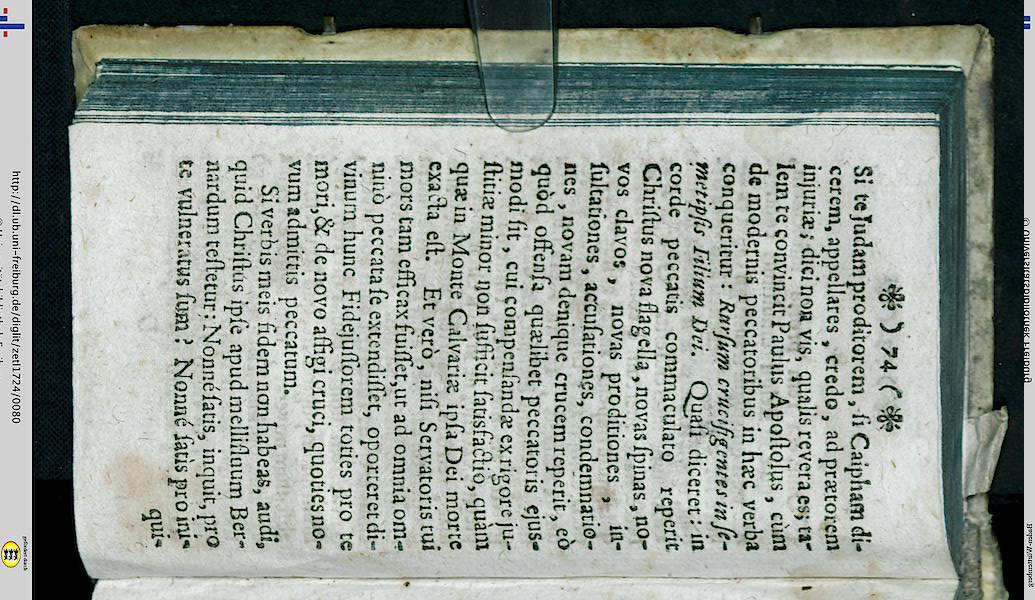 ❀ ) 74 ( ❀
Si te Judam proditorem, ſi Caipham di-
cerem, appellares, credo, ad prætorem
injuriæ; dici non vis, qualis revera es; ta-
lem te convincit Paulus Apoſtolus, cùm
de modernis peccatoribus in hæc verba
conqueritur: Rurſum crucifigentes in ſe-
metipſis Filium Dei. Quaſi diceret: in
corde peccatis commaculato reperit
Chriſtus nova flagella, novas ſpinas, no-
vos clavos, novas proditiones, in-
ſultationes, accuſationes, condemnatio-
nes, novam denique crucem reperit, eò
quòd offenſa quælibet peccatoris ejus-
modi ſit, cui compenſandæ ex rigore ju-
ſtitiæ minor non ſufficit ſatisfactio, quàm
quæ in Monte Calvariæ ipſa Dei morte
exacta eſt. Et verò, niſi Servatoris tui
mors tam efficax fuiſſet, ut ad omnia om-
ninò peccata ſe extendiſſet, oporteret di-
vinum hunc Fidejuſſorem toties pro te
mori, & de novo affigi cruci, quoties no-
vum admittis peccatum.
Si verbis meis fidem non habeas, audi,
quid Chriſtus ipſe apud mellifluum Ber-
nardum teſtetur: Nonné ſatis, inquit, pro
te vulneratus ſum? Nonné ſatis pro ini-
qui-
http://dl.ub.uni-freiburg.de/diglit/zetl1724/0080
© Universitätsbibliothek Freiburg
gefördert durch